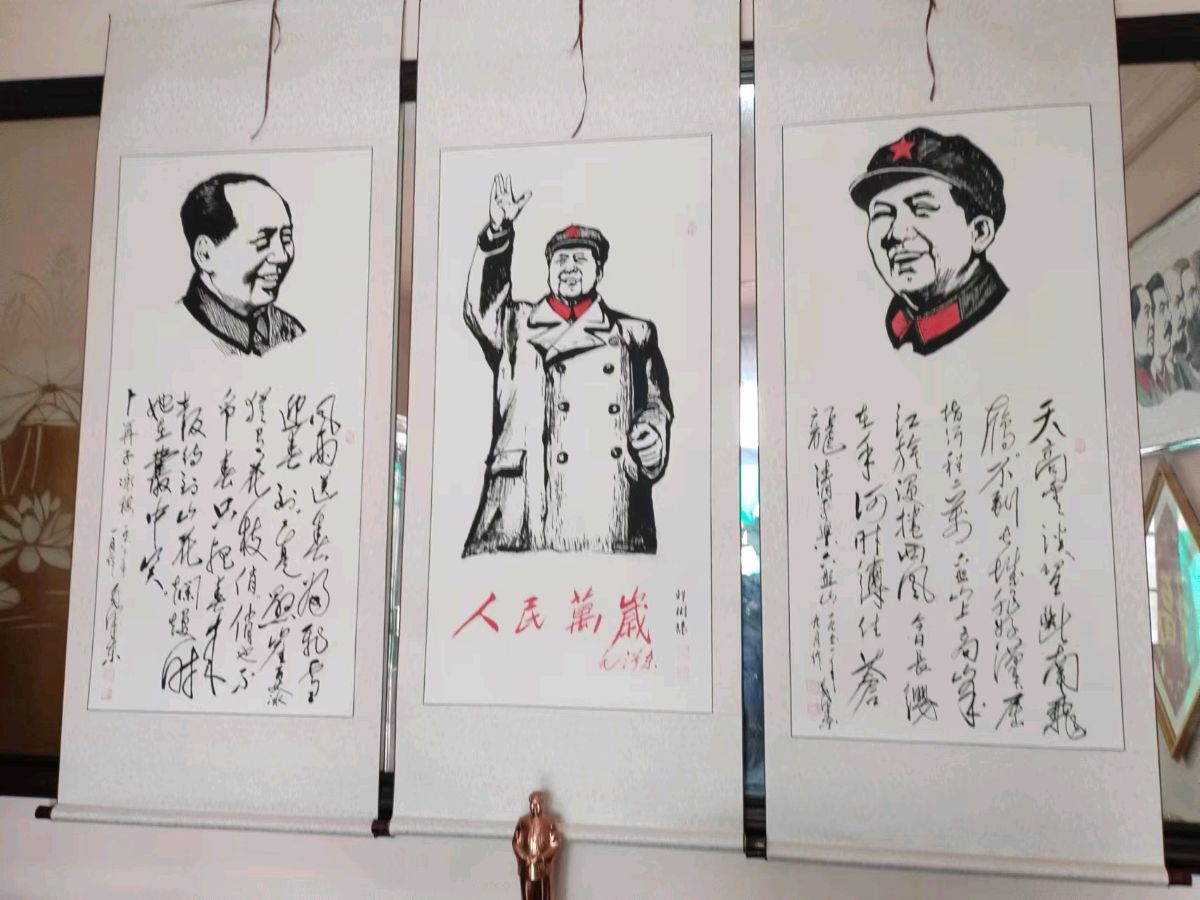 風雨送春归飛雪
迎春到已是悬崖百丈冰
犹有花枝俏俏也不
争春只把春来
报待到山花烂熳时
她在叢中笑
卜算子 咏梅
毛泽东
人民萬歲
毛泽东
天高雲淡望断南飛
雁不到长城非好漢屈
指行程二萬六盘山上高峰
红旗漫捲西風今日长缨
在手何时缚住蒼
龍 清平乐六盘山
九月作
毛泽东